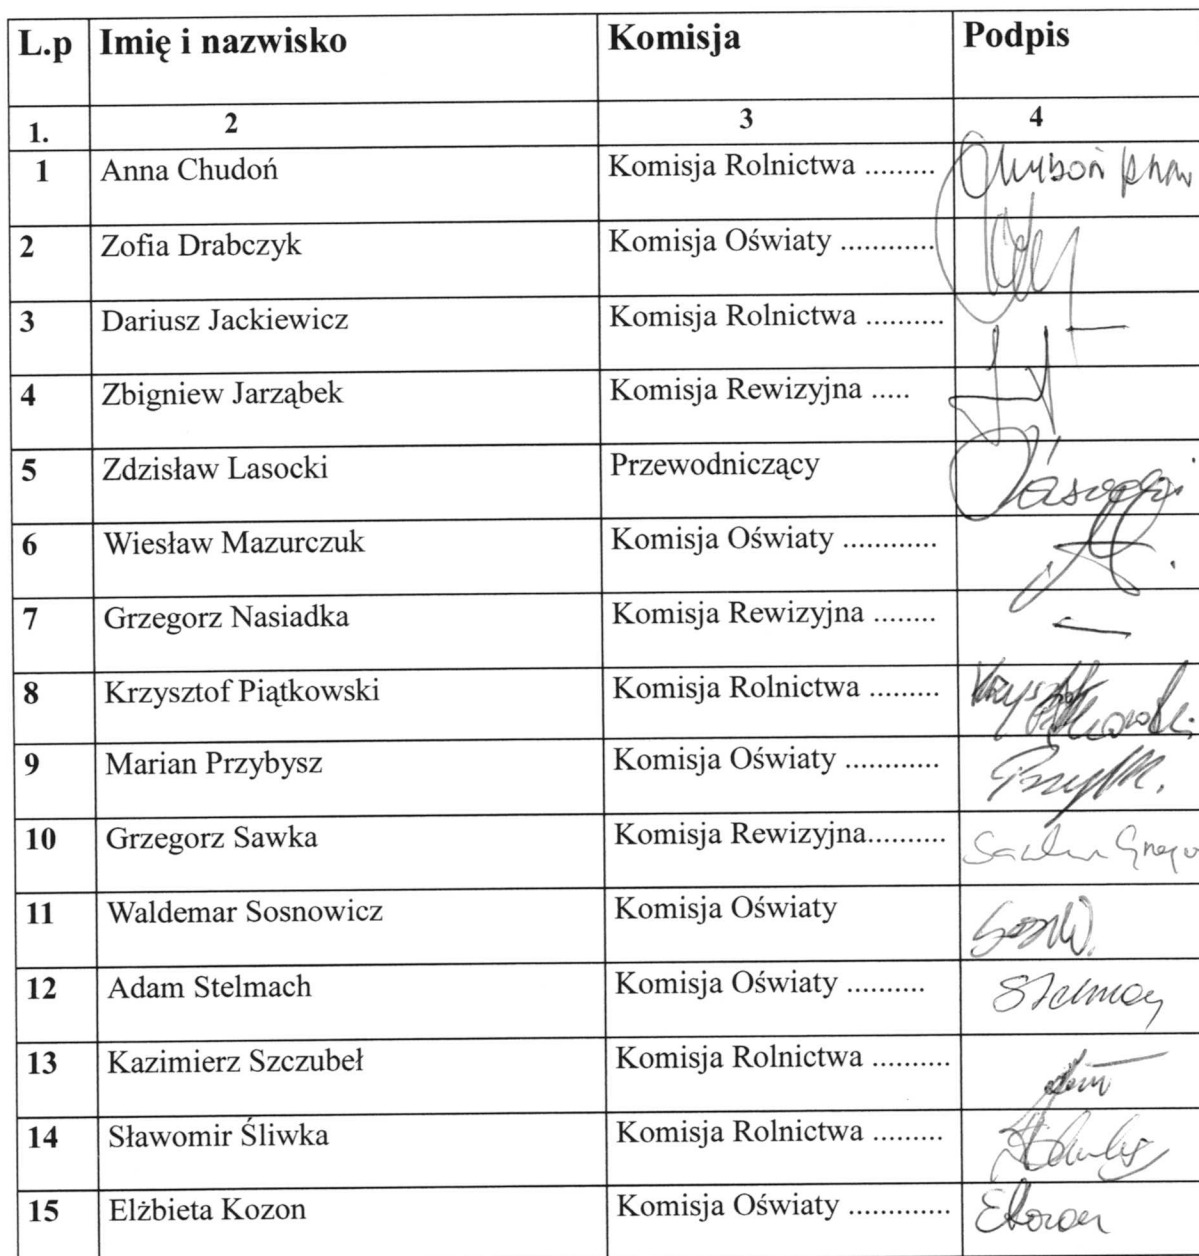 L.p Imię i nazwisko Komisja Podpis
1. 2 3 4
1 Anna Chudoń Komisja Rolnictwa .........
2 Zofia Drabczyk Komisja Oświaty ............
3 Dariusz Jackiewicz Komisja Rolnictwa ..........
4 Zbigniew Jarząbek Komisja Rewizyjna .....
5 Zdzisław Lasocki Przewodniczący
6 Wiesław Mazurczuk Komisja Oświaty ............
7 Grzegorz Nasiadka Komisja Rewizyjna ........
8 Krzysztof Piątkowski Komisja Rolnictwa .........
9 Marian Przybysz Komisja Oświaty ............
10 Grzegorz Sawka Komisja Rewizyjna..........
11 Waldemar Sosnowicz Komisja Oświaty
12 Adam Stelmach Komisja Oświaty ..........
13 Kazimierz Szczubeł Komisja Rolnictwa ..........
14 Sławomir Śliwka Komisja Rolnictwa .........
15 Elżbieta Kozon Komisja Oświaty ............